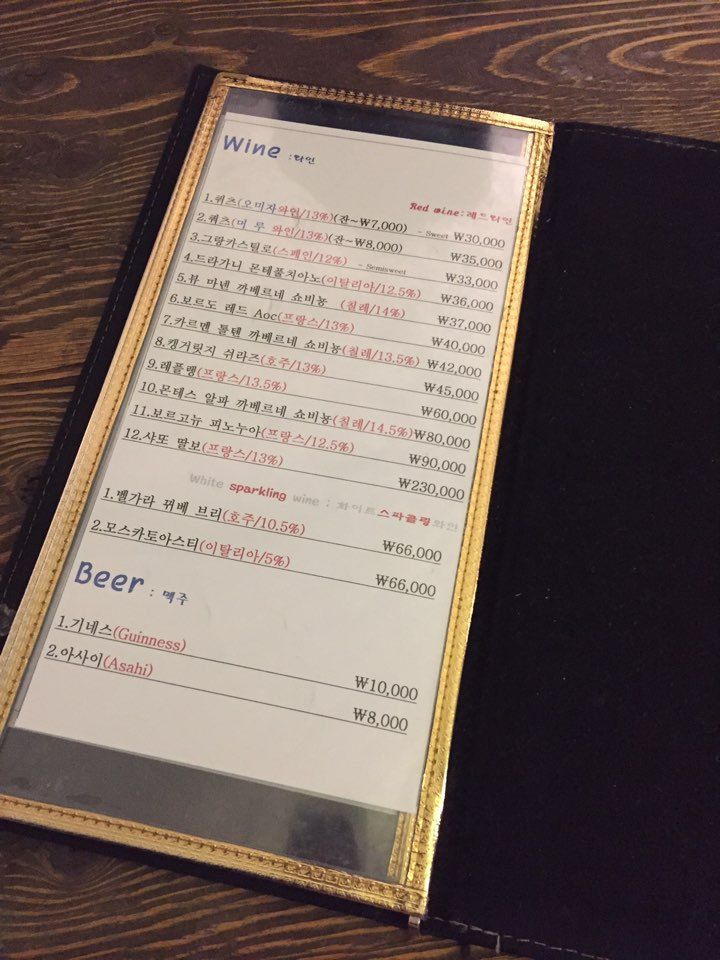 Wine : 와인
Red wine : 레드와인
1.퀴츠(오미자와인/13%)(잔~₩7,000) - Sweet ₩30,000
2.퀴츠(머루 와인/13%)(잔~₩8,000) ₩35,000
3.그랑카스틸로(스페인/12%) - Semisweet ₩33,000
4.드라가니 몬테풀치아노(이탈리아/12.5%) ₩36,000
5.뷰 마넨 까베르네 쇼비뇽 (칠레/14%) ₩37,000
6.보르도 레드 Aoc(프랑스/13%) ₩40,000
7.카르멘 톨텐 까베르네 쇼비뇽(칠레/13.5%) ₩42,000
8.캥거릿지 쉬라즈(호주/13%) ₩45,000
9.레플랭(프랑스/13.5%) ₩60,000
10.몬테스 알파 까베르네 쇼비뇽(칠레/14.5%) ₩80,000
11.보르고뉴 피노누아(프랑스/12.5%) ₩90,000
12.샤또 딸보(프랑스/13%) ₩230,000
White sparkling wine : 화이트스파클링와인
1.벨가라 뀌베 브리(호주/10.5%) ₩66,000
2.모스카토아스티(이탈리아/5%) ₩66,000
Beer : 맥주
1.기네스(Guinness) ₩10,000
2.아사이(Asahi) ₩8,000